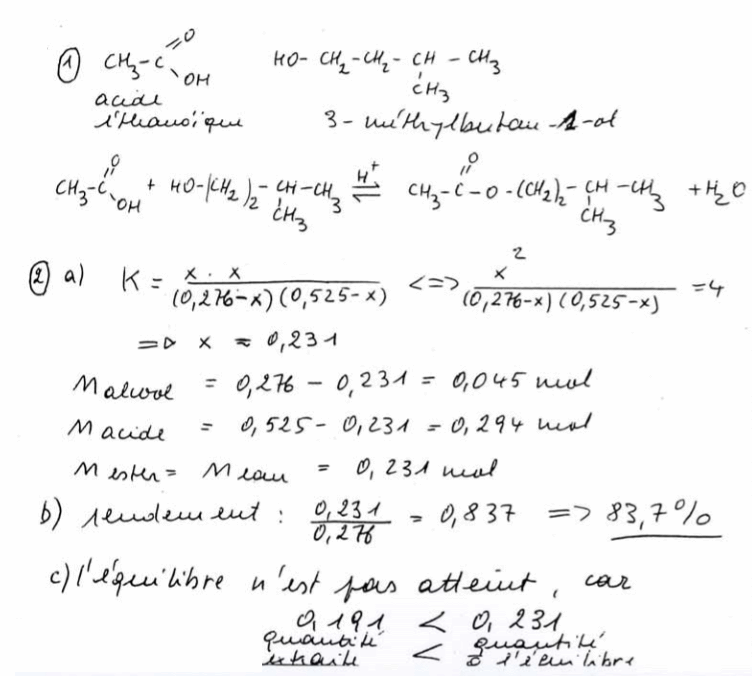 ① CH₃-C(=O)-OH HO-CH₂-CH₂-CH(CH₃)-CH₃
acide
éthanoïque 3-méthylbutan-1-ol
CH₃-C(=O)-OH + HO-(CH₂)₂-CH(CH₃)-CH₃ ⇌[H⁺] CH₃-C(=O)-O-(CH₂)₂-CH(CH₃)-CH₃ + H₂O
② a) K = x · x / (0,276-x)(0,525-x) <=> x² / (0,276-x)(0,525-x) = 4
=> x ≈ 0,231
n alcool = 0,276 - 0,231 = 0,045 mol
n acide = 0,525 - 0,231 = 0,294 mol
n ester = n eau = 0,231 mol
b) rendement : 0,231 / 0,276 = 0,837 => 83,7%
c) l'équilibre n'est pas atteint, car
0,191 < 0,231
quantité quantité
extraite < à l'équilibre